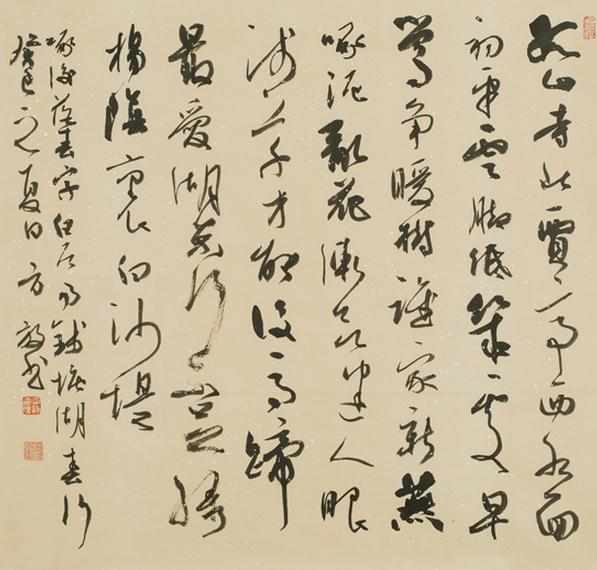 孤山寺北賈亭西水面
初平雲腳低幾處早
鶯爭暖樹誰家新燕
啄泥亂花漸欲迷人眼
淺草才能沒馬蹄
最愛湖東行不足綠
楊陰裏白沙堤
啄後落春字白居易錢塘湖春行
癸巳之夏日方